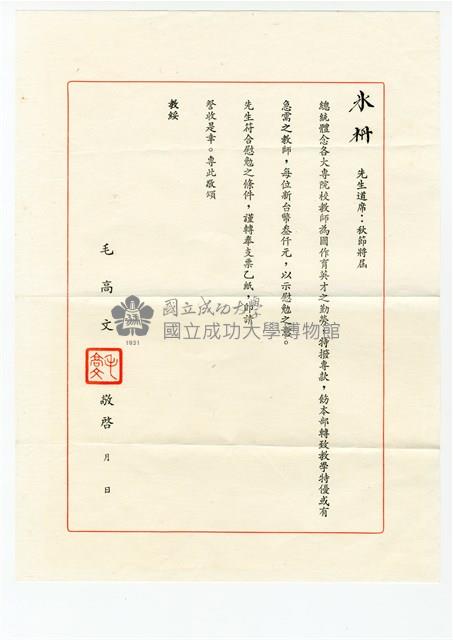 永枬 先生道席：秋節將屆
總統體念各大專院校教師為國作育英才之勤勞，特撥專款，飭本部轉致教學特優或有
急需之教師，每位新台幣叁仟元，以示慰勉之意。
先生符合慰勉之條件，謹轉奉支票乙紙，即請
詧收是幸。專此敬頌
教綏
毛高文 敬啓 月 日
毛高文
1931
國立成功大學
國立成功大學博物館